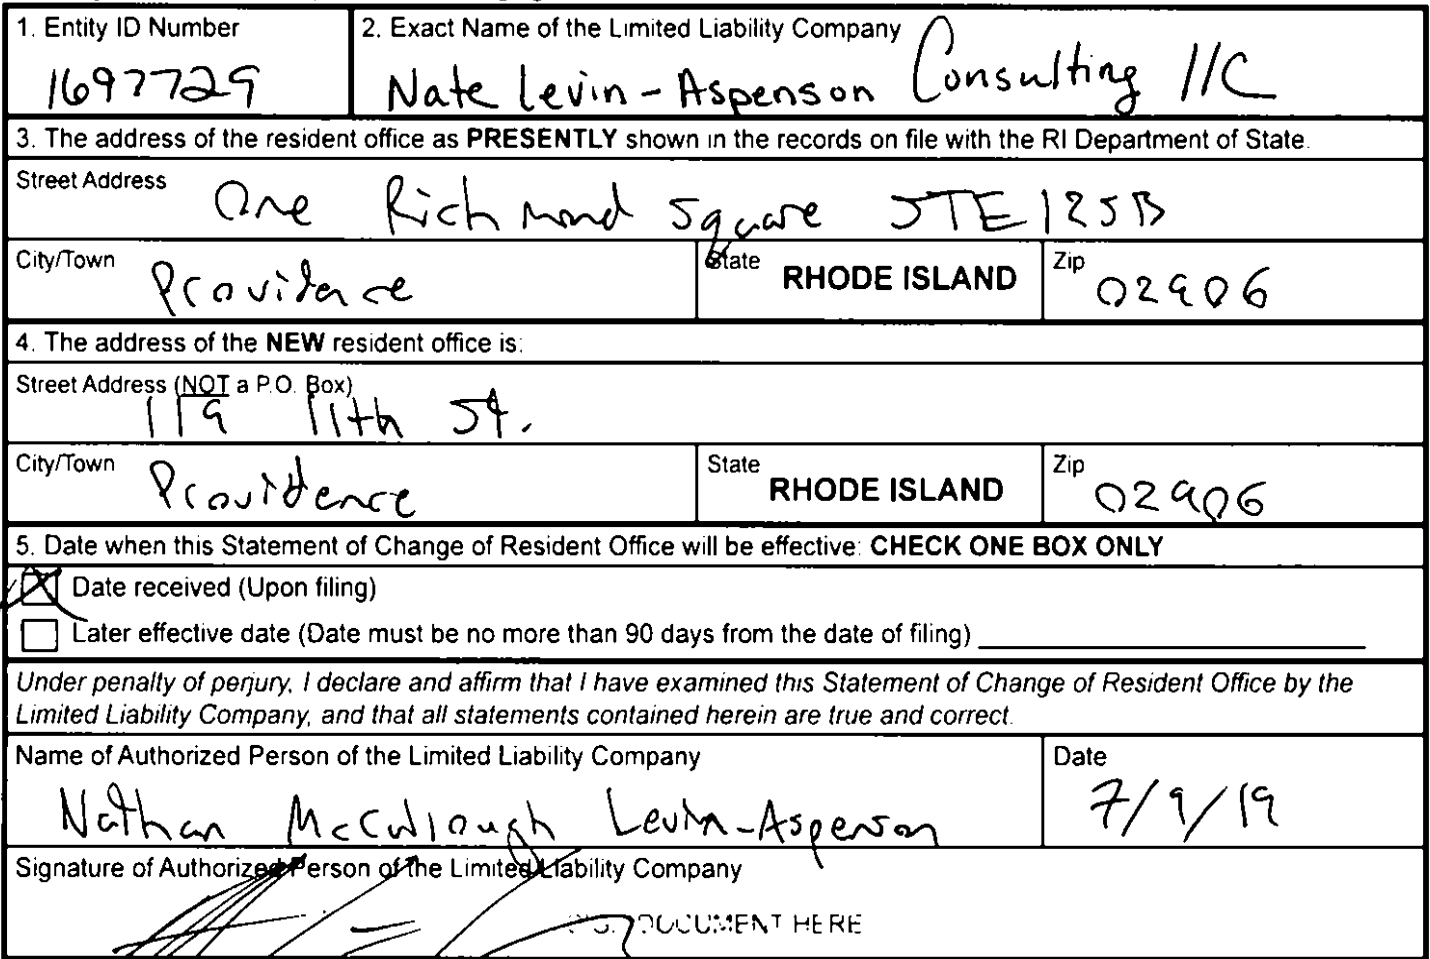 1. Entity ID Number
1697729
2. Exact Name of the Limited Liability Company
Nate Levin-Aspenson Consulting llC
3. The address of the resident office as PRESENTLY shown in the records on file with the RI Department of State.
Street Address
One Richmond Square STE 125B
City/Town
Providence
State
RHODE ISLAND
Zip
02906
4. The address of the NEW resident office is:
Street Address (NOT a P.O. Box)
119 11th St.
City/Town
Providence
State
RHODE ISLAND
Zip
02906
5. Date when this Statement of Change of Resident Office will be effective: CHECK ONE BOX ONLY
Date received (Upon filing)
Later effective date (Date must be no more than 90 days from the date of filing)
Under penalty of perjury, I declare and affirm that I have examined this Statement of Change of Resident Office by the
Limited Liability Company, and that all statements contained herein are true and correct.
Name of Authorized Person of the Limited Liability Company
Nathan McCullough Levin-Aspenson
Date
7/9/19
Signature of Authorized Person of the Limited Liability Company
DOCUMENT HERE